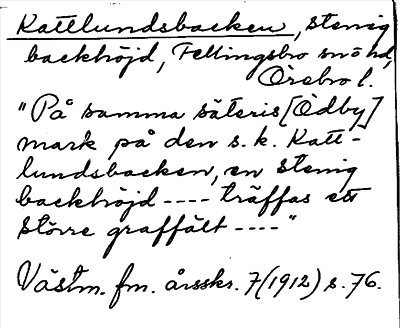 Kattlundsbacken, stenig
backhöjd, Fellingsbro snö hd,
Örebro l.
"På samma säteris [Ödby]
mark på den s.k. Katt-
lundsbacken, en stenig
backhöjd ---- träffas ett
större graffält ----"
Västm. fm. årsskr. 7(1912) s. 76.